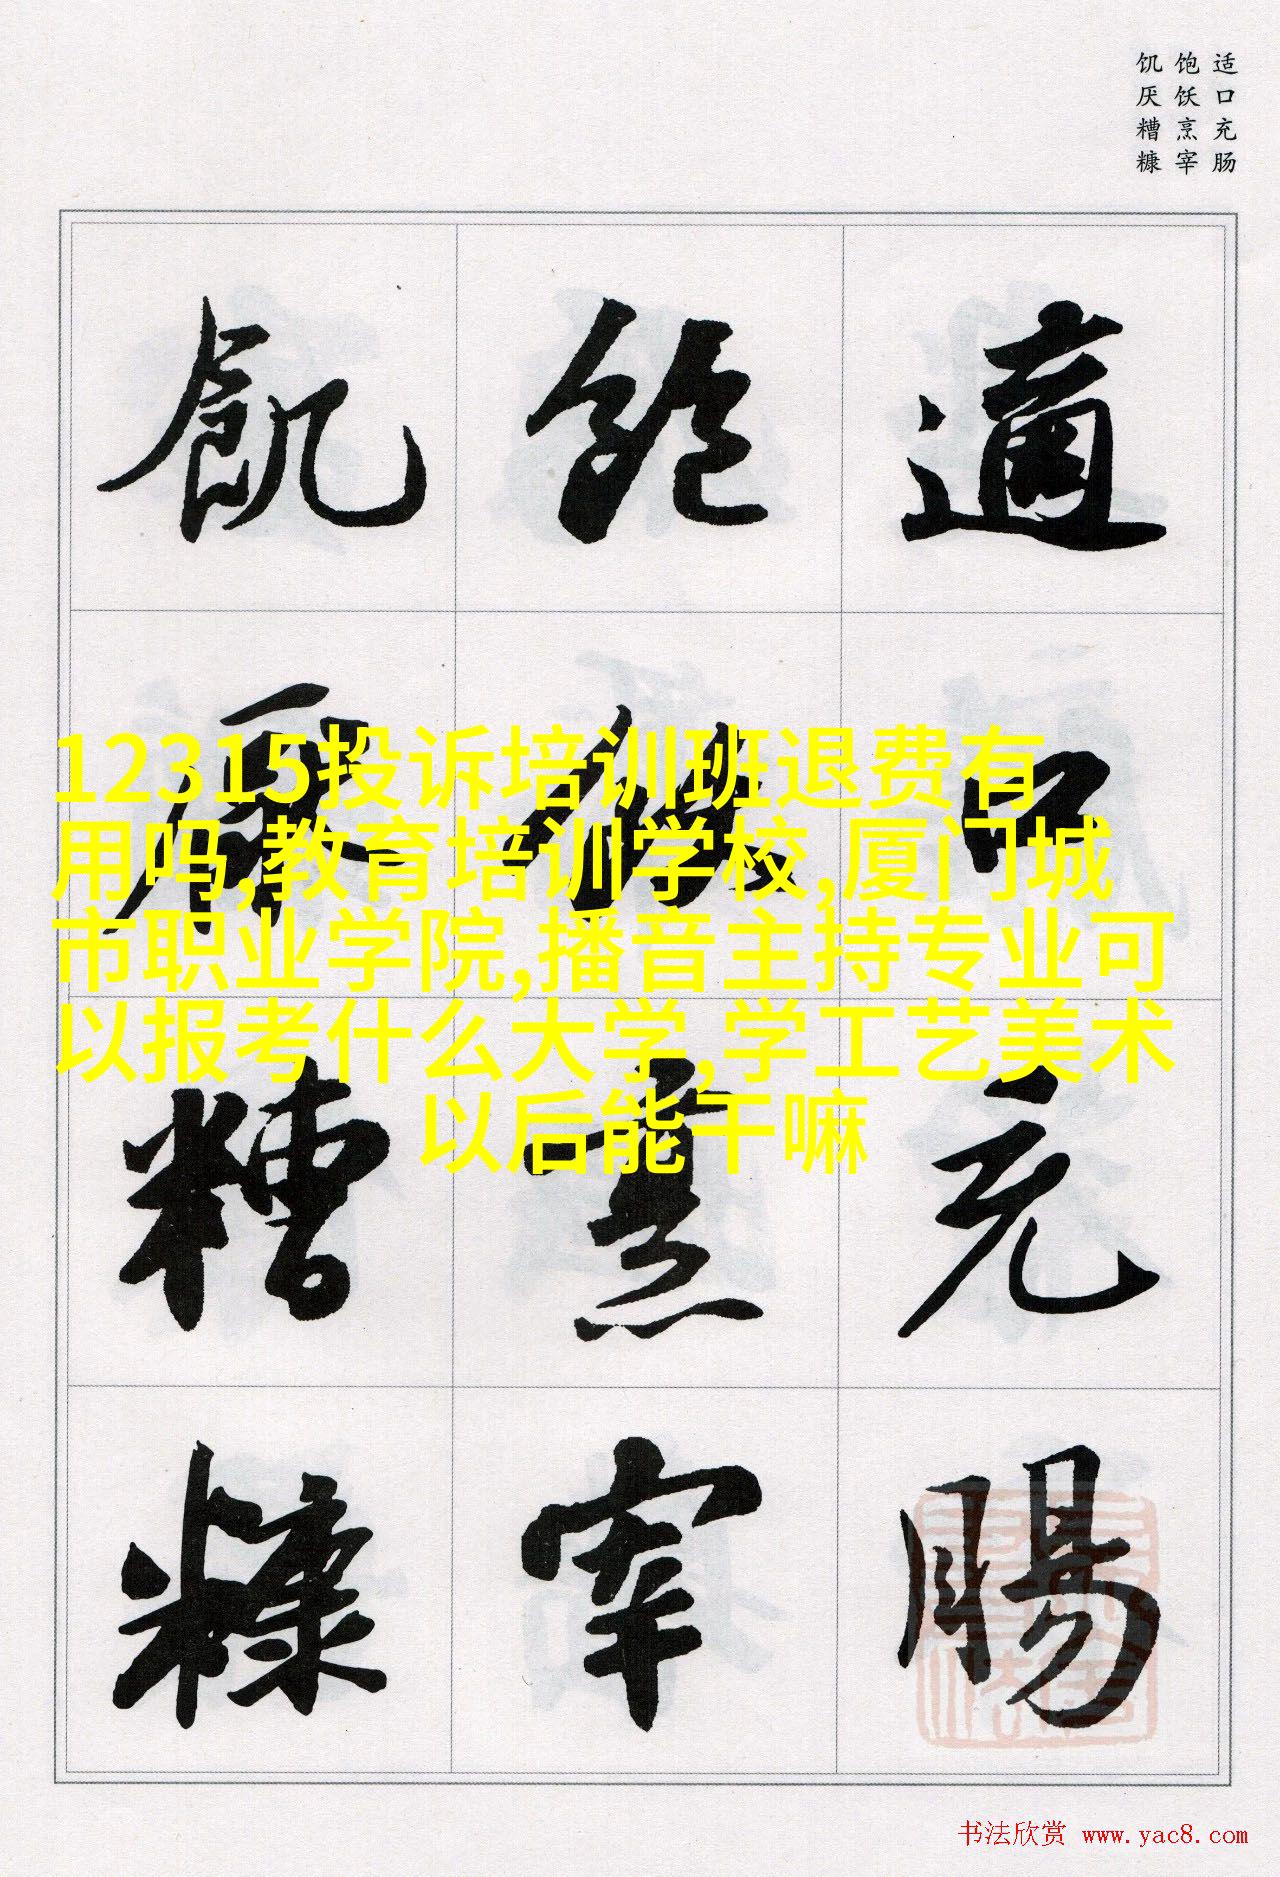 适口充肠
饱饫烹宰
饥厌糟糠
適口充腸
飽飫烹宰
飢厭糟糠
12315投诉培训班退费有
用吗,教育培训学校,厦门城
市职业学院,播音主持专业可
以报考什么大学,学工艺美术
以后能干嘛
书法欣赏 www.yac8.com